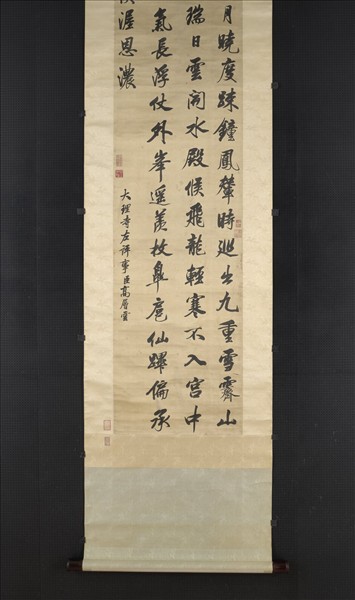 月曉度疎鐘鳳輦時巡出九重雪霽山
瑞日雲開水殿候飛龍輕寒不入宮中
氣長浮仗外峯遥羨枚皐扈仙蹕偏承
渥恩濃
大理寺左評事臣高層雲